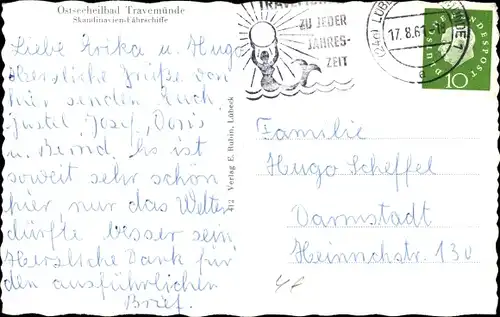 Ost-seeheilbad Travemünde
Skandinavien-Fährschiffe
Liebe Erika u. Hugo
Herzliche Grüße von
hier senden Euch
Gustel, Josef, Doris
u. Bernd. Es ist
soweit sehr schön
hier, nur das Wetter
dürfte besser sein.
Herzliche Dank für
den ausführlichen
Brief.
412 Verlag E. Rubin, Lübeck
ZU JEDER
JAHRES-
ZEIT
17.8.61
DEUTSCHE BUNDESPOST
10
Familie
Hugo Scheffel
Darmstadt
Heinrichstr. 130